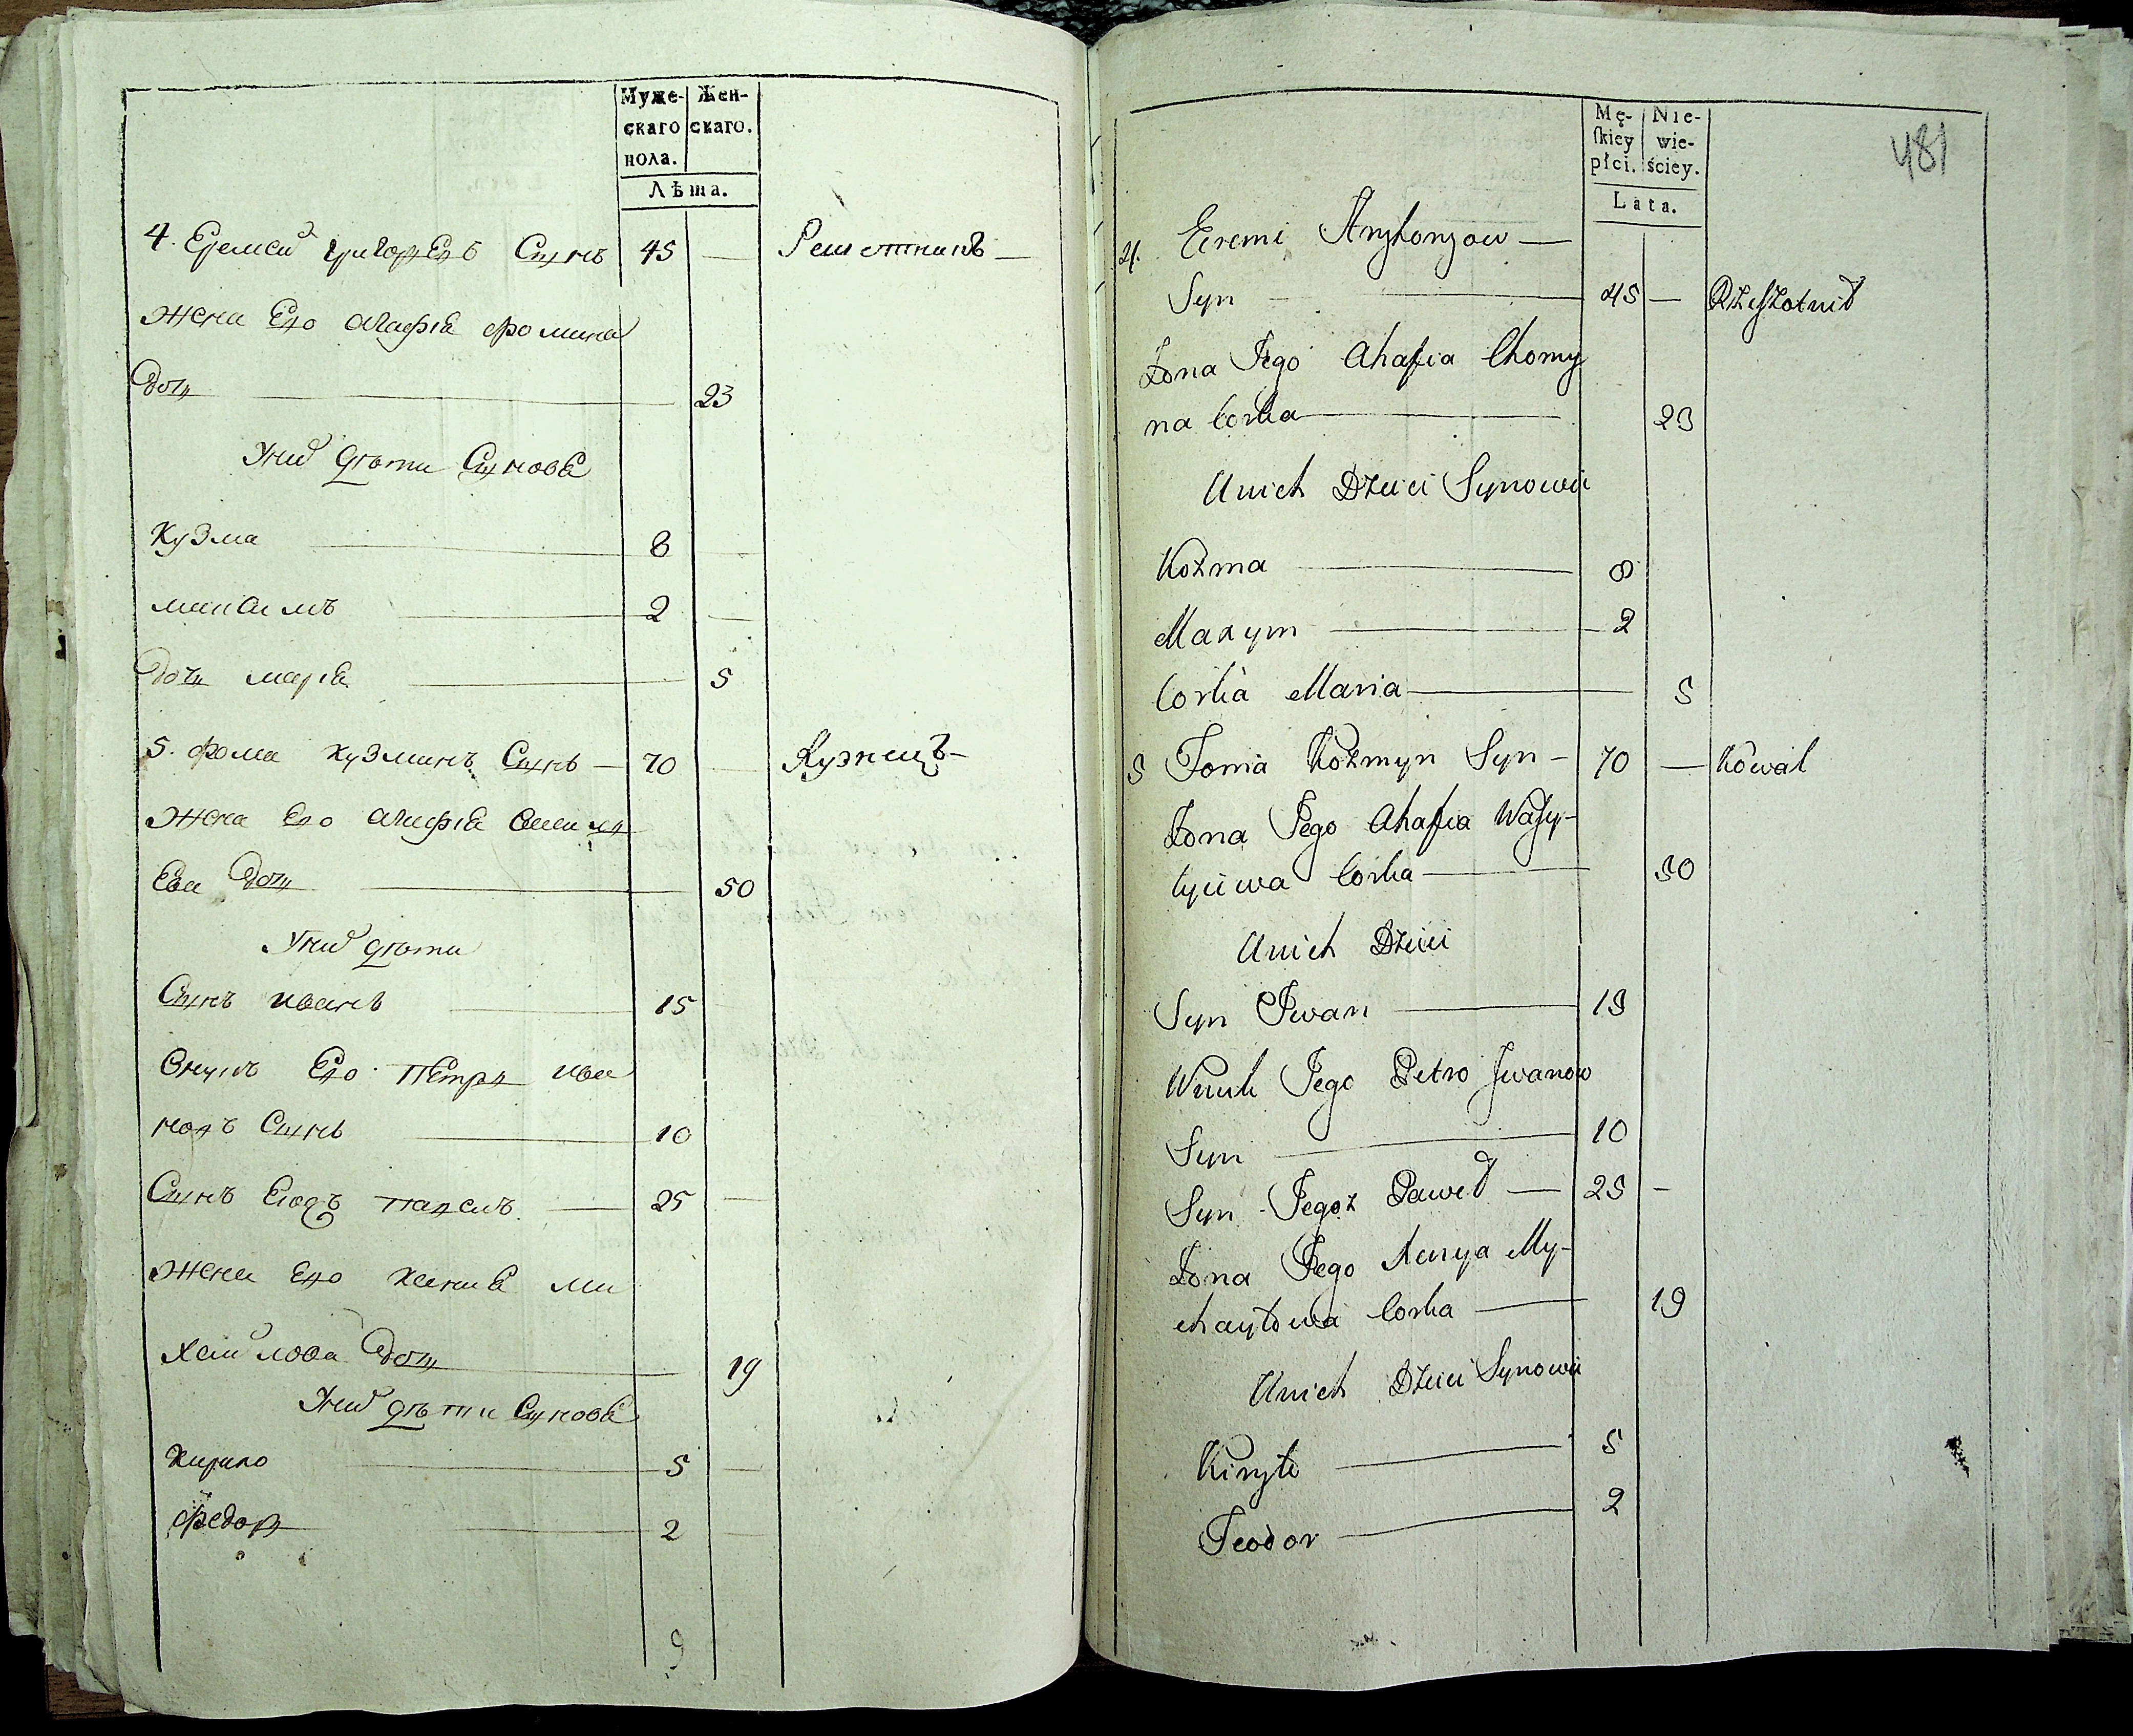 Муже- Жен-
скаго скаго.
пола.
Лѣта.
4. Еремей григоревъ Сынъ 45 — Решетникъ —
жена Его агафіа фомина
доч 23
У них дѣти Сынове
Кузма 8
максимъ 2
доч маріа 5
5. фома кузминъ Сынъ — 70 — Кузнецъ —
жена Его агафіа васил
Ева доч 50
У них дѣти
Сынъ иванъ 15
Внукъ Его Петръ ива
новъ Сынъ 10
Сынъ Егожъ павелъ — 25 —
жена Его ксениа ми
хайлова доч 19
У них дѣти Сынове
Кирило 5
федор 2
9
Mę- Nie-
skiey wie-
płci. ściey.
Lata.
481
4. Eremi Hryhoryow —
Syn 45 — Rzeszotnik
Żona Jego Ahafia Chomy
na Corka 23
U nich Dzieci Synowie
Kozma 8
Maxym 2
Corka Maria 5
5 Foma Kozmyn Syn — 70 — Kowal
Żona Jego Ahafia Wasy-
lyiewa Corka 50
U nich Dzieci
Syn Iwan 15
Wnuk Jego Petro Iwanow
Syn 10
Syn Jegoż Paweł — 25 —
Żona Jego Xenya My-
chayłowa Corka 19
U nich Dzieci Synowie
Kiryło 5
Feodor 2